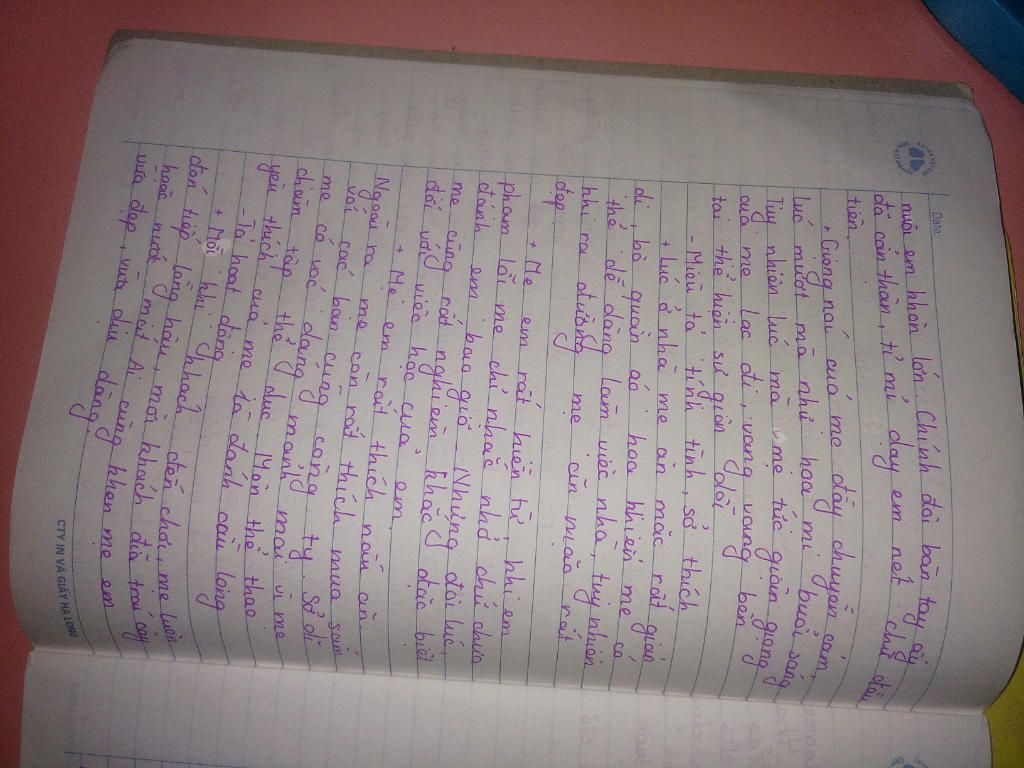 Date:
nuôi em khôn lớn. Chính đôi bàn tay ấy
đã cẩn thận, tỉ mỉ dạy em nét chữ đầu
tiên.
+ Giọng nói của mẹ đầy chuyền cảm,
lúc mượt mà như hoạ mi buổi sáng
Tuy nhiên lúc mà mẹ tức giận giọng
của mẹ lạc đi, vang vang bên
tai thể hiện sự giận dỗi
- Miêu tả tính tình, sở thích
+ Lúc ở nhà mẹ ăn mặc rất giản
dị, bộ quần áo hoa khiến mẹ có
thể dễ dàng làm việc nhà, tuy nhiên
khi ra đường mẹ ăn mặc rất
đẹp.
+ Mẹ em rất hiền từ, khi em
phạm lỗi mẹ chỉ nhắc nhở chứ chưa
đánh em bao giờ. Nhưng đôi lúc,
mẹ cũng rất nghiêm khắc đặc biệt
đối với việc học của em.
+ Mẹ em rất thích nấu ăn
Ngoài ra mẹ còn rất thích mua sắm
với các bạn cùng công ty. Sở dĩ
mẹ có vóc dáng mảnh mai vì mẹ
chăm tập thể dục. Môn thể thao
yêu thích của mẹ là đánh cầu lông
- Tả hoạt động
+ Mỗi khi khách đến chơi, mẹ luôn
đón tiếp nồng hậu, mời khách đĩa trái cây
hoặc nước mát. Ai cũng khen mẹ em
vừa đẹp, vừa dịu dàng
CTY IN VÀ GIẤY HẠ LONG